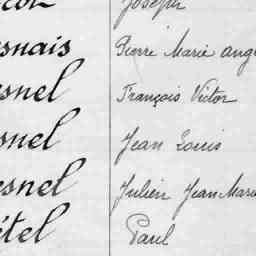 Joseph
esnais Pierre Marie Ang
esnel François Victor
esnel Jean Louis
esnel Julien Jean Marie
étel Paul